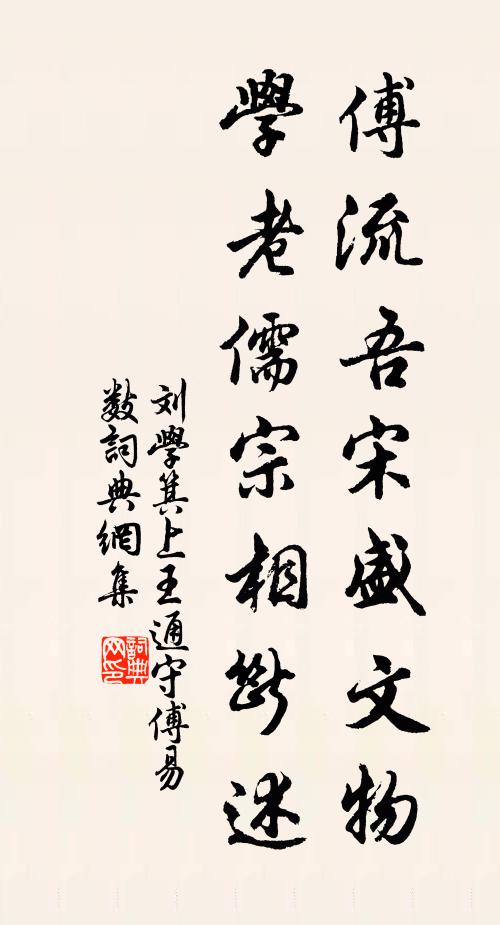 傅流吾宋盛文物
學老儒宗相斷述
刘學箕上王通守傅易
数詞典網集
詞典網印